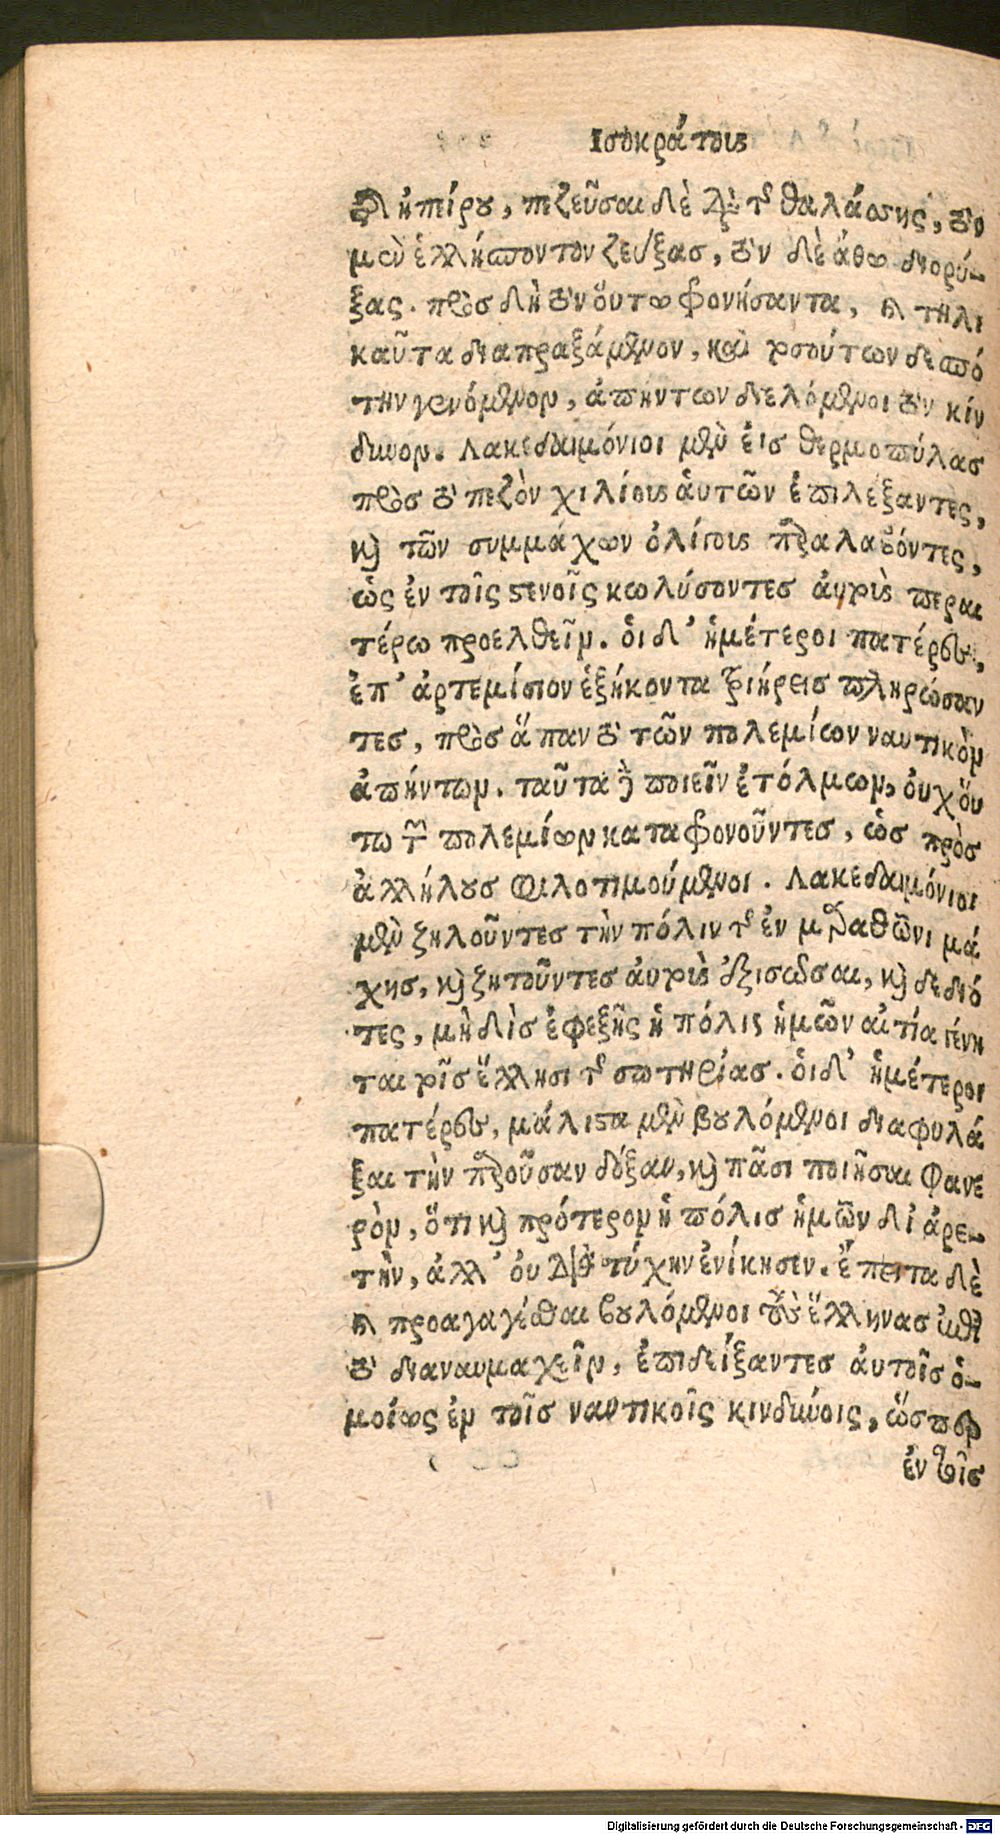 Ισοκράτους
τῆς ἠπείρου, πεζεῦσαι δὲ διὰ τῆς θαλάσσης, τὸν
μὲν ἑλλήσποντον ζεύξας, τὸν δὲ ἄθω διορύ-
ξας. πρὸς δὴ τὸν οὕτω φρονήσαντα, καὶ τηλι
καῦτα διαπραξάμενον, καὶ τοσούτων δεσπό
την γενόμενον, ἀπήντων διελόμενοι τὸν κίν
δυνον. Λακεδαιμόνιοι μὲν εἰς θερμοπύλας
πρὸς τὸ πεζὸν χιλίους αὑτῶν ἐπιλέξαντες,
καὶ τῶν συμμάχων ὀλίγους παραλαβόντες,
ὡς ἐν τοῖς στενοῖς κωλύσοντες αὐτοὺς περαι
τέρω προελθεῖν. οἱ δ' ἡμέτεροι πατέρες,
ἐπ' ἀρτεμίσιον ἑξήκοντα τριήρεις πληρώσαν
τες, πρὸς ἅπαν τὸ τῶν πολεμίων ναυτικὸν
ἀπήντων. ταῦτα δὲ ποιεῖν ἐτόλμων, οὐχ οὕ
τω τῶν πολεμίων καταφρονοῦντες, ὡς πρὸς
ἀλλήλους φιλοτιμούμενοι. Λακεδαιμόνιοι
μὲν ζηλοῦντες τὴν πόλιν τῆς ἐν μαραθῶνι μά
χης, καὶ ζητοῦντες αὑτοὺς ἐξισῶσαι, καὶ δεδιό
τες, μὴ δὶς ἐφεξῆς ἡ πόλις ἡμῶν αἰτία γένη
ται τοῖς ἕλλησι τῆς σωτηρίας. οἱ δ' ἡμέτεροι
πατέρες, μάλιστα μὲν βουλόμενοι διαφυλά
ξαι τὴν παροῦσαν δόξαν, καὶ πᾶσι ποιῆσαι φανε
ρὸν, ὅτι καὶ πρότερον ἡ πόλις ἡμῶν δι' ἀρε-
τὴν, ἀλλ' οὐ διὰ τύχην ἐνίκησεν. ἔπειτα δὲ
καὶ προαγαγέσθαι βουλόμενοι τοὺς ἕλληνας ἐπὶ
τὸ διαναυμαχεῖν, ἐπιδείξαντες αὐτοῖς ὁ-
μοίως ἐν τοῖς ναυτικοῖς κινδύνοις, ὥσπερ
ἐν τοῖς
Digitalisierung gefördert durch die Deutsche Forschungsgemeinschaft - DFG